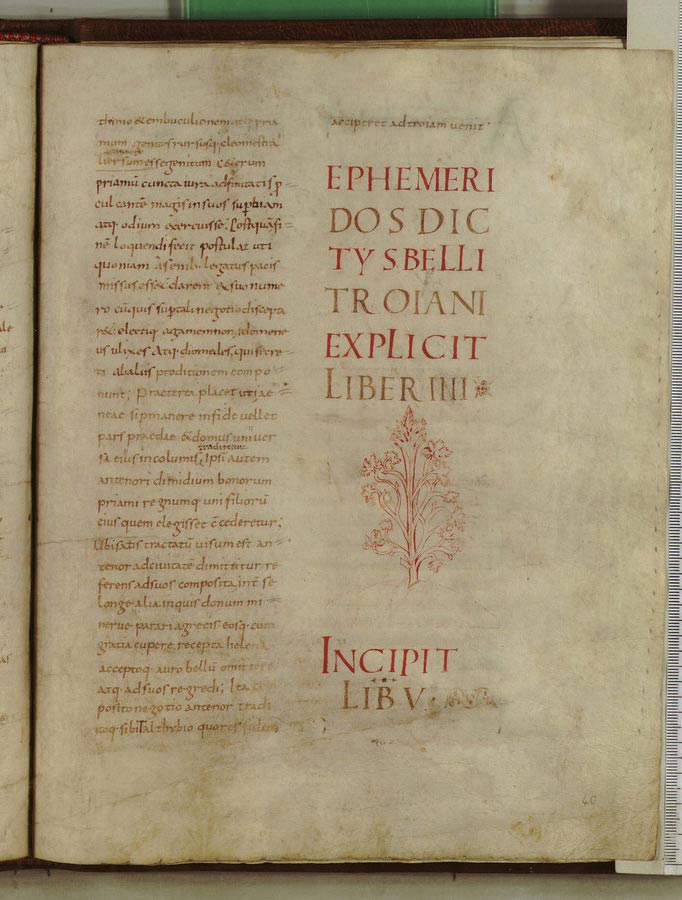 mum genitos rursusq; cleomestra
priamū cuncta iura adfinitatis p
cul cantē magis in suos superbiam
atq; odium acercuisse. Postquā fi
nē loquendi fecit postulat uti
quoniam a senib; legatus pacis
missus esset clarent & suo nume
ro cū quis super tali negotio discepta
ret; electiq; agamemnon idomene
us ulixes atq; diomedes, qui secre
to ab aliis proditionem compo
nunt; Praeterea placet uti ae
neae si permanere in fide uellet
pars praedae & domus uniuer
traditum
sa eius incolumis, Ipsi autem
antenori dimidium bonorum
priami regnumq; uni filiorū
eius quem elegisset cēderetur;
Ubi satis tractatū uisum est an
tenor ad ciuitatē dimittitur re
ferens ad suos composita int se
longe alia inquis donum mi
nerue parari a grecis eosq; cum
gratia cupere recepta helena
acceptoq; auro bellū omittere
atq; ad suos regredi; Ita
posito negotio antenor tradi
toq; sibi talthybio quo res
acciperet ad troiam uenit
EPHEMERI
DOS DIC
TYS BELLI
TROIANI
EXPLICIT
LIBER IIII
INCIPIT
LIB V
40